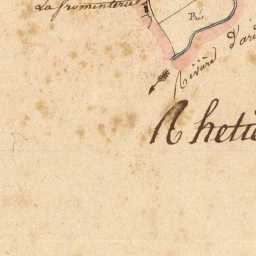 La fromenterie
Pré
Rivière d'ar
Rhetie